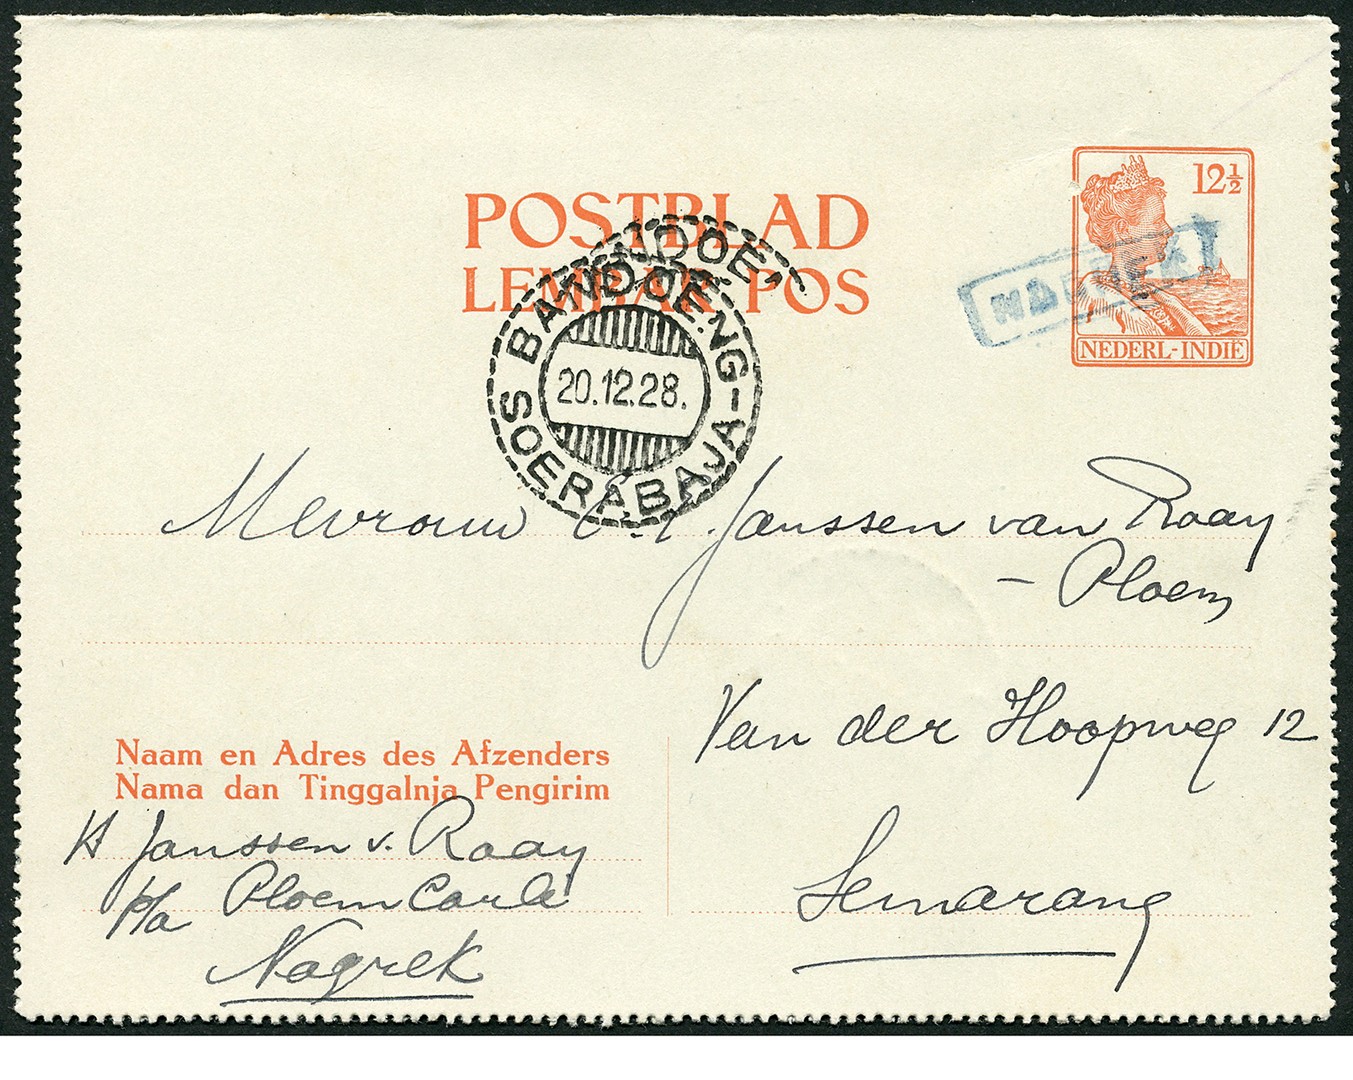 POSTBLAD
LEMBAR POS
12½
NEDERL-INDIË
NAGREK
BANDOENG-
SOERABAJA-
20.12.28.
Mevrouw Janssen van Raay
- Ploem
Van der Hoopweg 12
Semarang
Naam en Adres des Afzenders
Nama dan Tinggalnja Pengirim
H Janssen v. Raay
p/a Ploem Carli
Nagrek